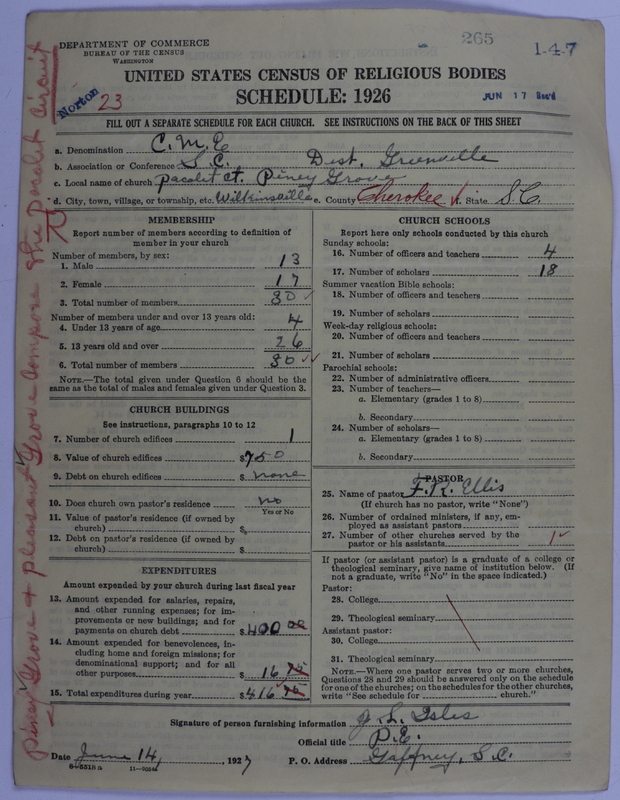 DEPARTMENT OF COMMERCE
BUREAU OF THE CENSUS
WASHINGTON
265
1-4-7
Norton 23
UNITED STATES CENSUS OF RELIGIOUS BODIES
SCHEDULE: 1926
JUN 17 Rec'd
FILL OUT A SEPARATE SCHEDULE FOR EACH CHURCH. SEE INSTRUCTIONS ON THE BACK OF THIS SHEET
a. Denomination C.M.E
b. Association or Conference S.C. Dist. Greenville
c. Local name of church Pacolet ct. Piney Grove
d. City, town, village, or township, etc. Wilkinsville e. County Cherokee f. State S.C.
Piney Grove & Pleasant Grove Compose the Pacolet Circuit
MEMBERSHIP
Report number of members according to definition of
member in your church
Number of members, by sex:
1. Male 13
2. Female 17
3. Total number of members 30
Number of members under and over 13 years old:
4. Under 13 years of age 4
5. 13 years old and over 26
6. Total number of members 30
NOTE.—The total given under Question 6 should be the
same as the total of males and females given under Question 3.
CHURCH BUILDINGS
See instructions, paragraphs 10 to 12
7. Number of church edifices 1
8. Value of church edifices $750
9. Debt on church edifices $ none
10. Does church own pastor's residence no
Yes or No
11. Value of pastor's residence (if owned by
church) $
12. Debt on pastor's residence (if owned by
church) $
EXPENDITURES
Amount expended by your church during last fiscal year
13. Amount expended for salaries, repairs,
and other running expenses; for im-
provements or new buildings; and for
payments on church debt $400 00
14. Amount expended for benevolences, in-
cluding home and foreign missions; for
denominational support; and for all
other purposes $16
15. Total expenditures during year $416
CHURCH SCHOOLS
Report here only schools conducted by this church
Sunday schools:
16. Number of officers and teachers 4
17. Number of scholars 18
Summer vacation Bible schools:
18. Number of officers and teachers
19. Number of scholars
Week-day religious schools:
20. Number of officers and teachers
21. Number of scholars
Parochial schools:
22. Number of administrative officers
23. Number of teachers—
a. Elementary (grades 1 to 8)
b. Secondary
24. Number of scholars—
a. Elementary (grades 1 to 8)
b. Secondary
PASTOR
25. Name of pastor F.R. Ellis
(If church has no pastor, write "None")
26. Number of ordained ministers, if any, em-
ployed as assistant pastors
27. Number of other churches served by the
pastor or his assistants 1
If pastor (or assistant pastor) is a graduate of a college or
theological seminary, give name of institution below. (If
not a graduate, write "No" in the space indicated.)
Pastor:
28. College
29. Theological seminary
Assistant pastor:
30. College
31. Theological seminary
NOTE.—Where one pastor serves two or more churches,
Questions 28 and 29 should be answered only on the schedule
for one of the churches; on the schedules for the other churches,
write "See schedule for church."
Signature of person furnishing information J. L. Isles
Official title P.E.
Date June 14, 1927 P. O. Address Gaffney, S.C.